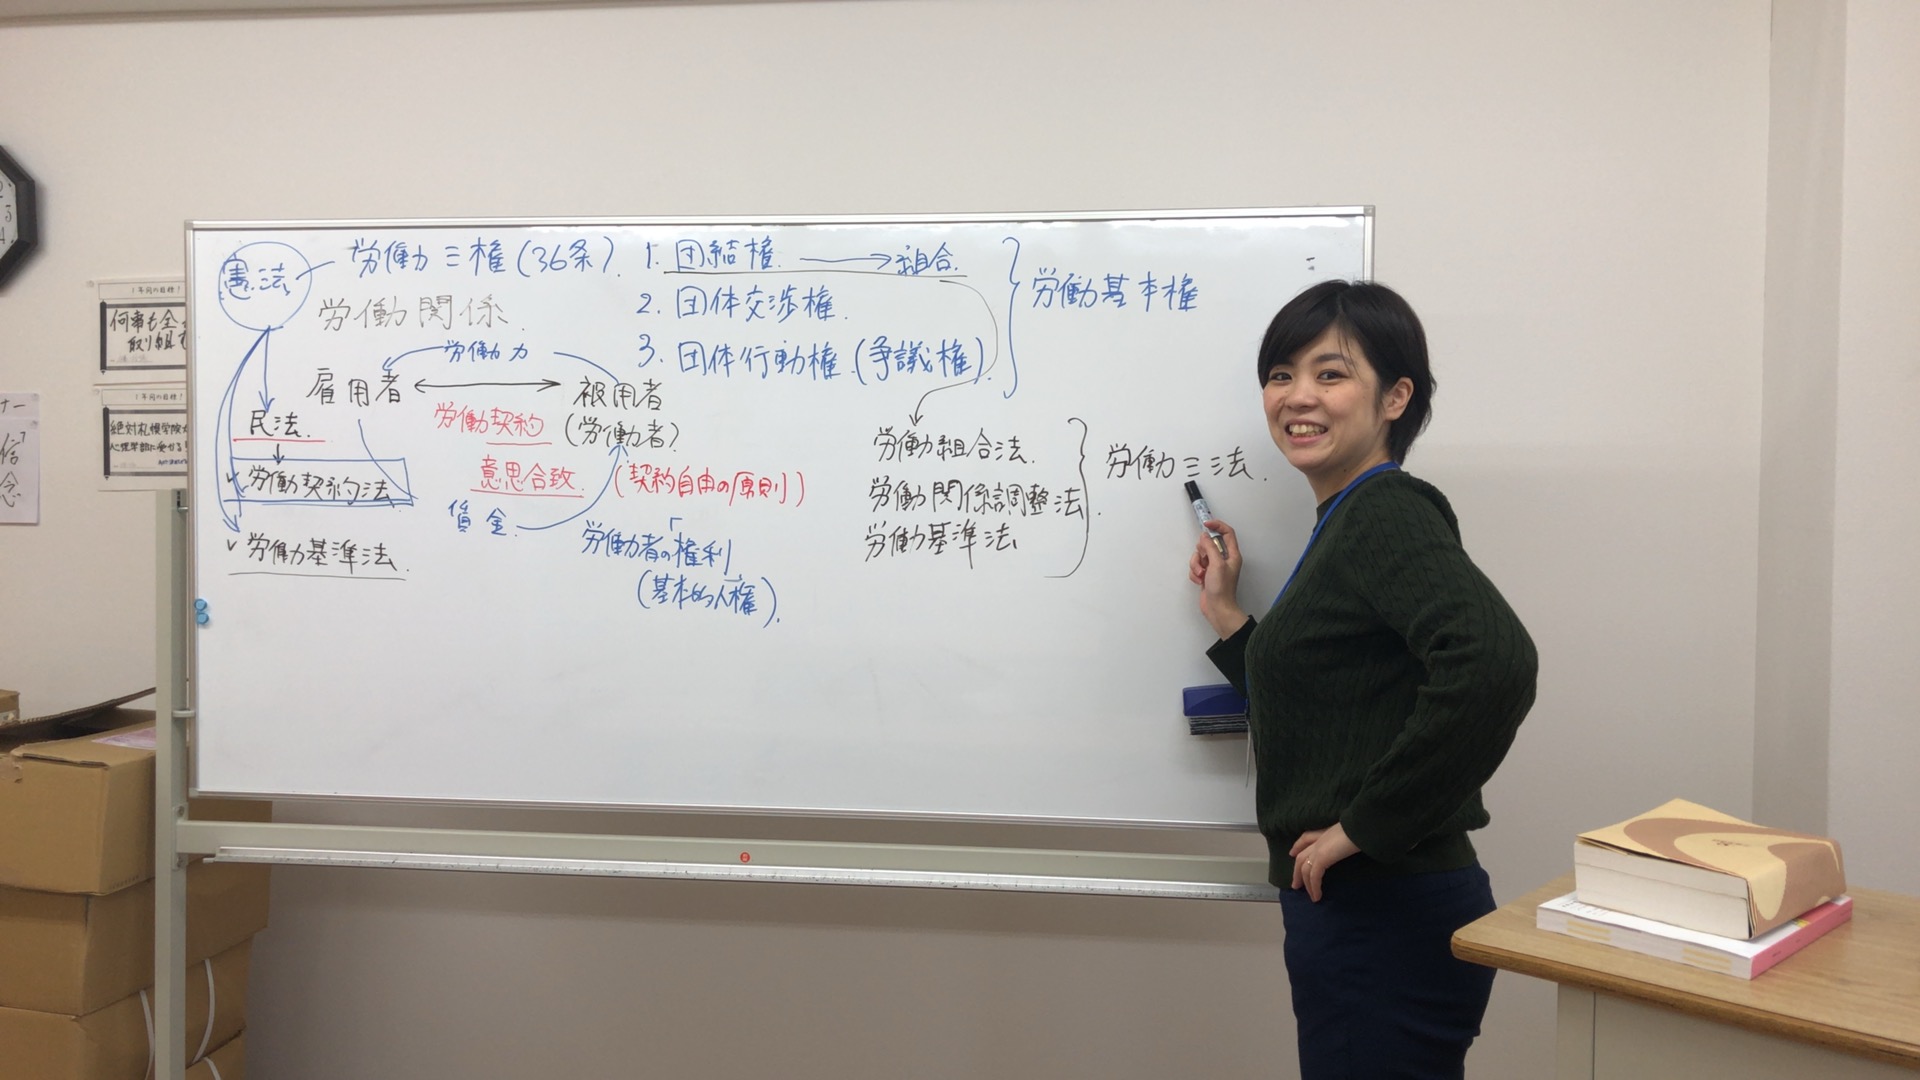 憲法
労働三権(36条).
1. 団結権. → 組合.
2. 団体交渉権.
3. 団体行動権.(争議権).
労働基本権
労働関係.
労働力
雇用者 ↔ 被用者
(労働者)
労働契約
意思合致. (契約自由の原則)
賃金.
労働者の「権利」
(基本的人権).
民法.
労働契約法
労働基準法.
労働組合法.
労働関係調整法.
労働基準法
労働三法.
1年間の目標!
何事も全
取り組む
1年間の目標!
絶対札幌学院
心理学部に受かる!
ナー
信
念
3
4